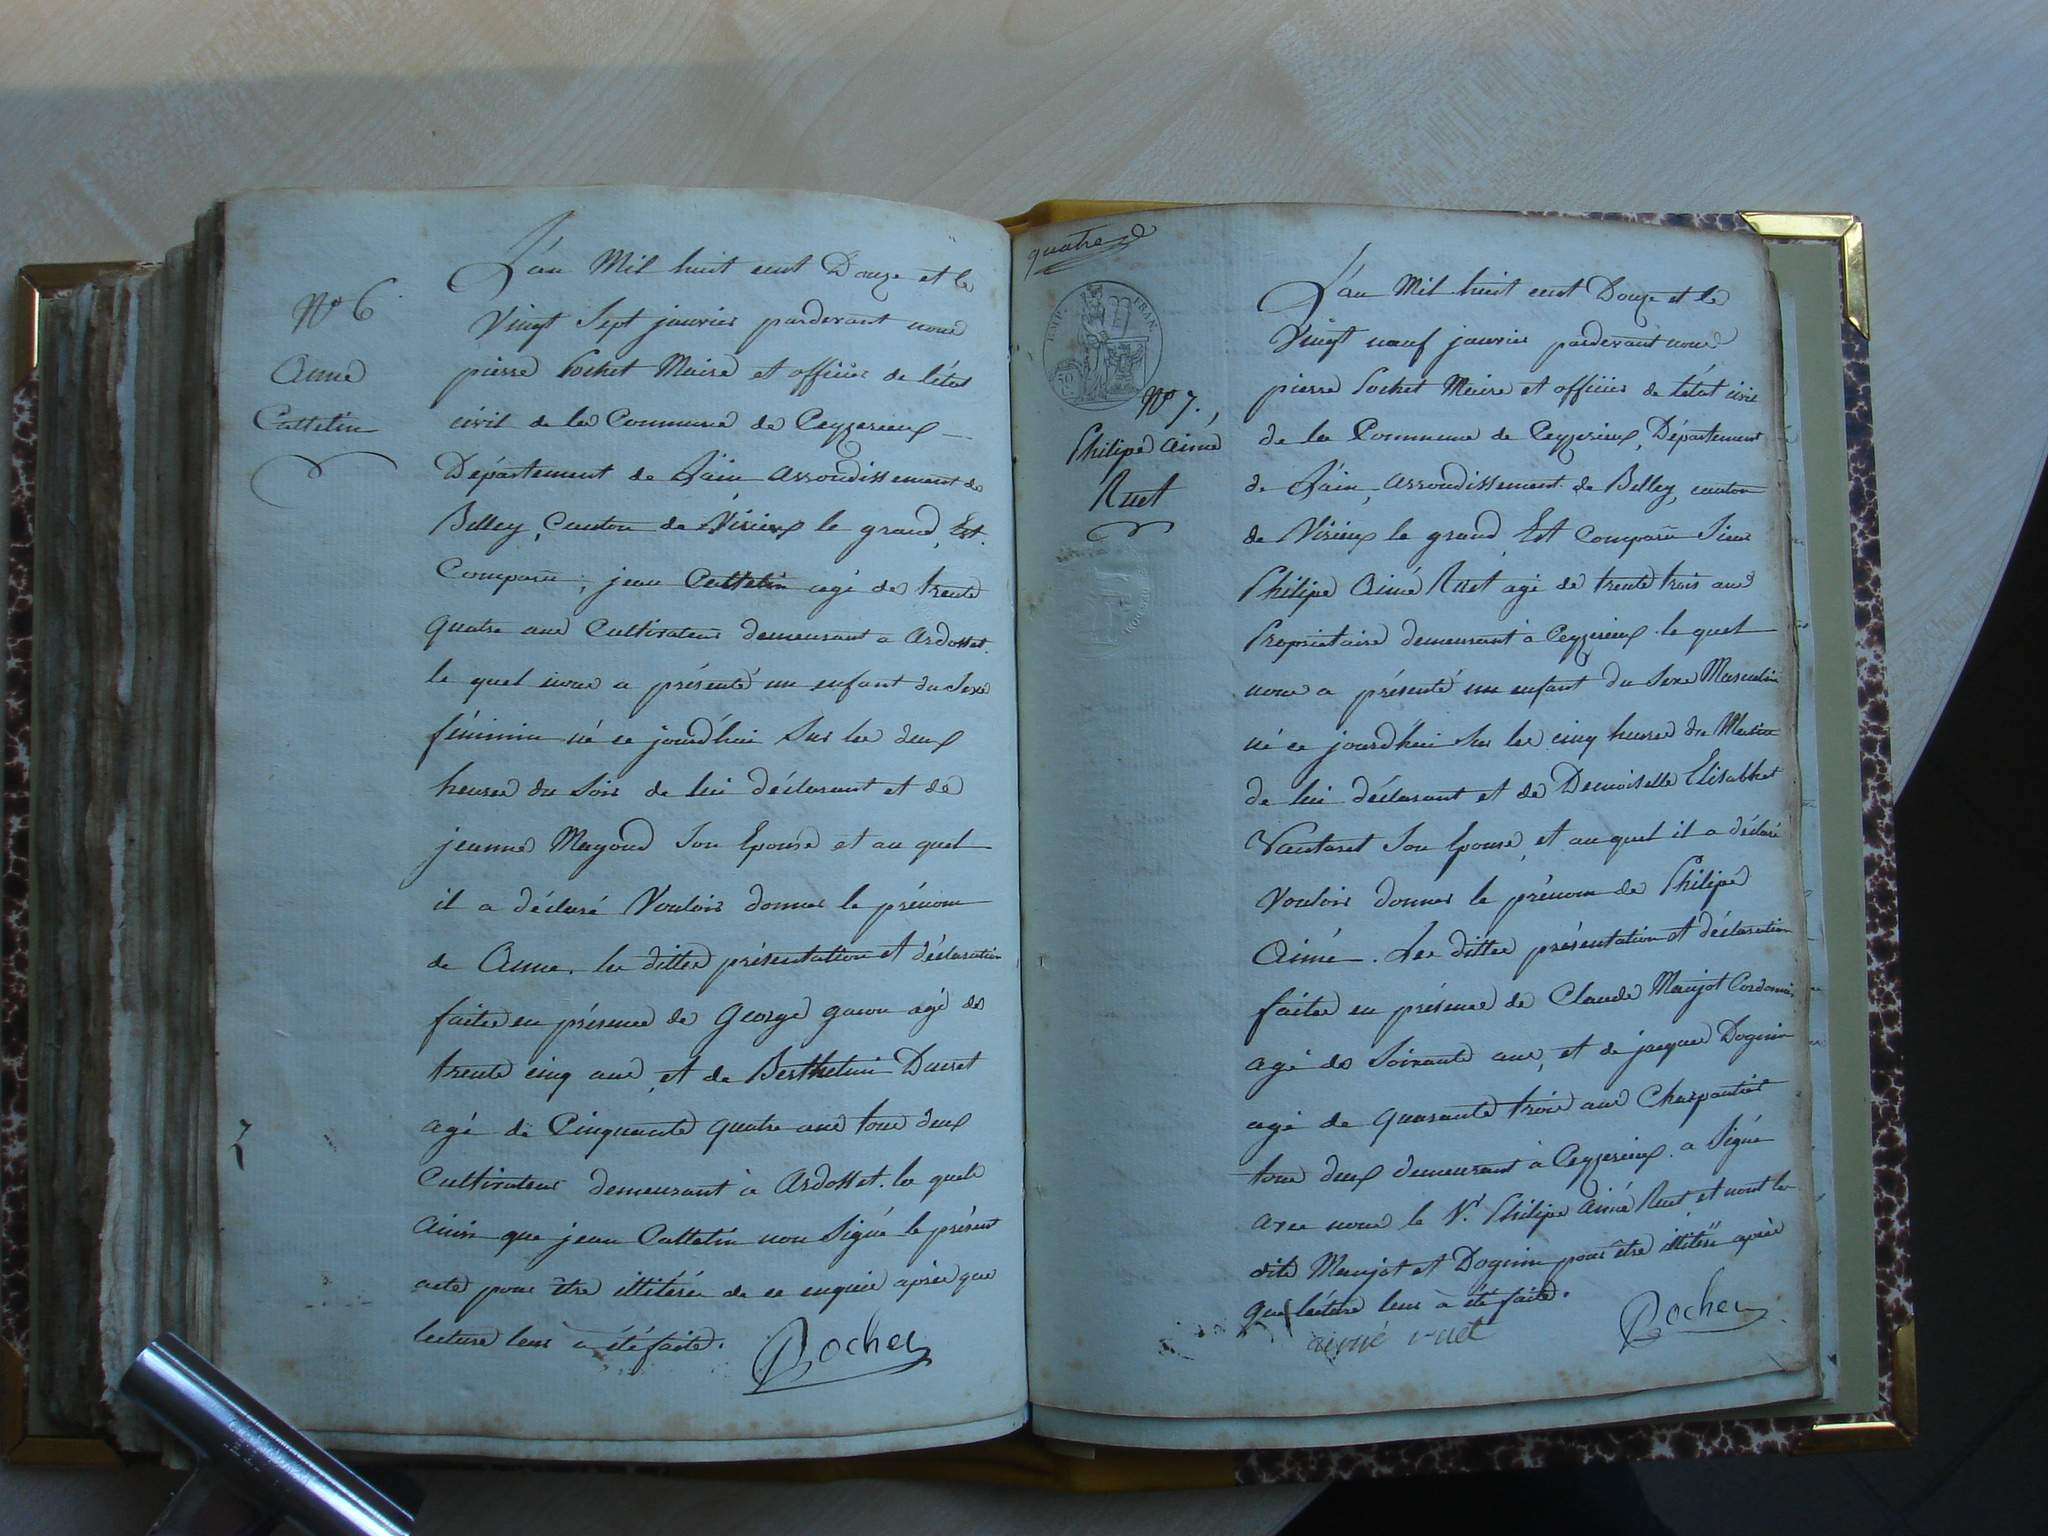 N° 6
Anne
Cattelin
L'an Mil huit cent Douze et le
Vingt Sept janvier pardevant nous
pierre Pochet Maire et officier de l'état
civil de la Commune de Ceyzerieux
Département de L'ain arrondissement de
Belley, Canton de Virieux le grand, Est
Comparu, jean Cattelin agé de trente
quatre ans Cultivateur demeurant a Ardosset.
le quel nous a présenté un enfant du Sexe
féminin né ce jourd'hui Sur les deux
heures du Soir de lui déclarant et de
jeanne Magoud Son Epouse et au quel
il a déclaré Vouloir donner le prénom
de Anne. les dittes présentation et déclaration
faites en présence de George agé de
trente cinq ans, et de Berthelmi
agé de Cinquante quatre ans tous deux
Cultivateur demeurant à Ardosset. les quels
ainsi que jean Cattelin non Signé le présent
acte pour être illitéré de ce enquis après que
lecture leur à été faite.
quatre
EMP. FRAN.
N° 7.
Philipe aimé
Ruet
L'an Mil huit cent Douze et le
Vingt neuf janvier pardevant nous
pierre Pochet Maire et officier de l'état civil
de la Commune de Ceyzerieux, Département
de L'ain, arrondissement de Belley, canton
de Virieux le grand, Est Comparu Sieur
Philipe Aimé Ruet agé de trente trois ans
Proprietaire demeurant à Ceyzerieux. le quel
nous a présenté un enfant du Sexe Masculin
né ce jourd'hui Sur les cinq heures du Matin
de lui déclarant et de Demoiselle Elisabhet
Vautaret Son Epouse, et au quel il a déclaré
Vouloir donner le prénom de Philipe
Aimé. Les dittes présentation et déclaration
faites en présence de Claude Maujot Cordonnier
agé de Soixante ans, et de jaques Dognin
agé de quarante trois ans Charpentier
tous deux demeurant à Ceyzerieux. a Signé
avec nous le Sr. Philipe Aimé Ruet, et non les
dits Maujot et Dognin pour être illitéré après
que lecture leur à été faite.
aimé ruet